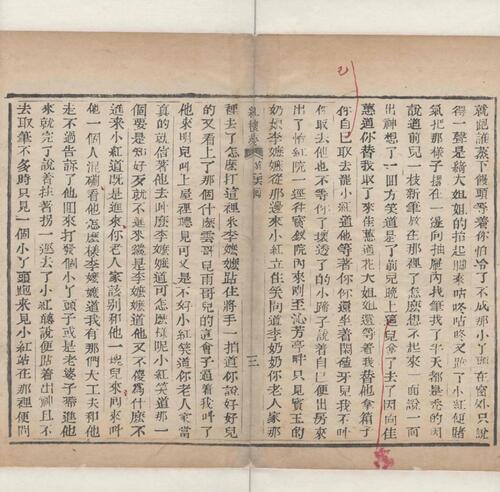 就把誰蒸下饅頭等着你怕冷了不成那小丫頭在窗外只說
得一聲是綺大姐姐的抬起脚來咕咚咕咚又跑了小紅便賭
氣把那樣子擲在一邊向抽屜內找筆找了半天都是禿的因
說道前兒一枝新筆放在那裡了怎麼想不起來一面說一面
出神想了一回方笑道是了前兒晚上鶯兒拿了去了因向佳
蕙道你替我取了來佳蕙道花大姐姐還等着我替他拿箱子
你自己取去罷小紅道他等着你你還坐着閒磕牙兒我不叫
你取去他也不等你了壞透了的小蹄子說着自己便出房來
出了怡紅院一逕往寶釵院內來剛至沁芳亭畔只見寶玉的
奶娘李嬤嬤從那邊來小紅立住笑問道李奶奶你老人家那
紅樓夢 三
裡去了怎麼打這裡來李嬤嬤站住將手一拍道你說好好兒
的又看上了那個什麼雲哥兒雨哥兒的這會子逼着我叫了
他來明兒叫上屋裡聽見可又是不好小紅笑道你老人家當
真的就信着他去叫麼李嬤嬤道可怎麼樣呢小紅笑道那一
個要是知好歹就不進來纔是李嬤嬤道他又不傻爲什麼不
進來小紅道旣是進來你老人家該別和他一塊兒來回來叫
他一個人混碰看他怎麼樣李嬤嬤道我有那們大工夫和他
走不過告訴了他回來打發個小丫頭子或是老婆子帶進他
來就完了說着拄着拐一逕去了小紅聽說便站着出神且不
去取筆不多時只見一個小丫頭跑來見小紅站在那裡便問